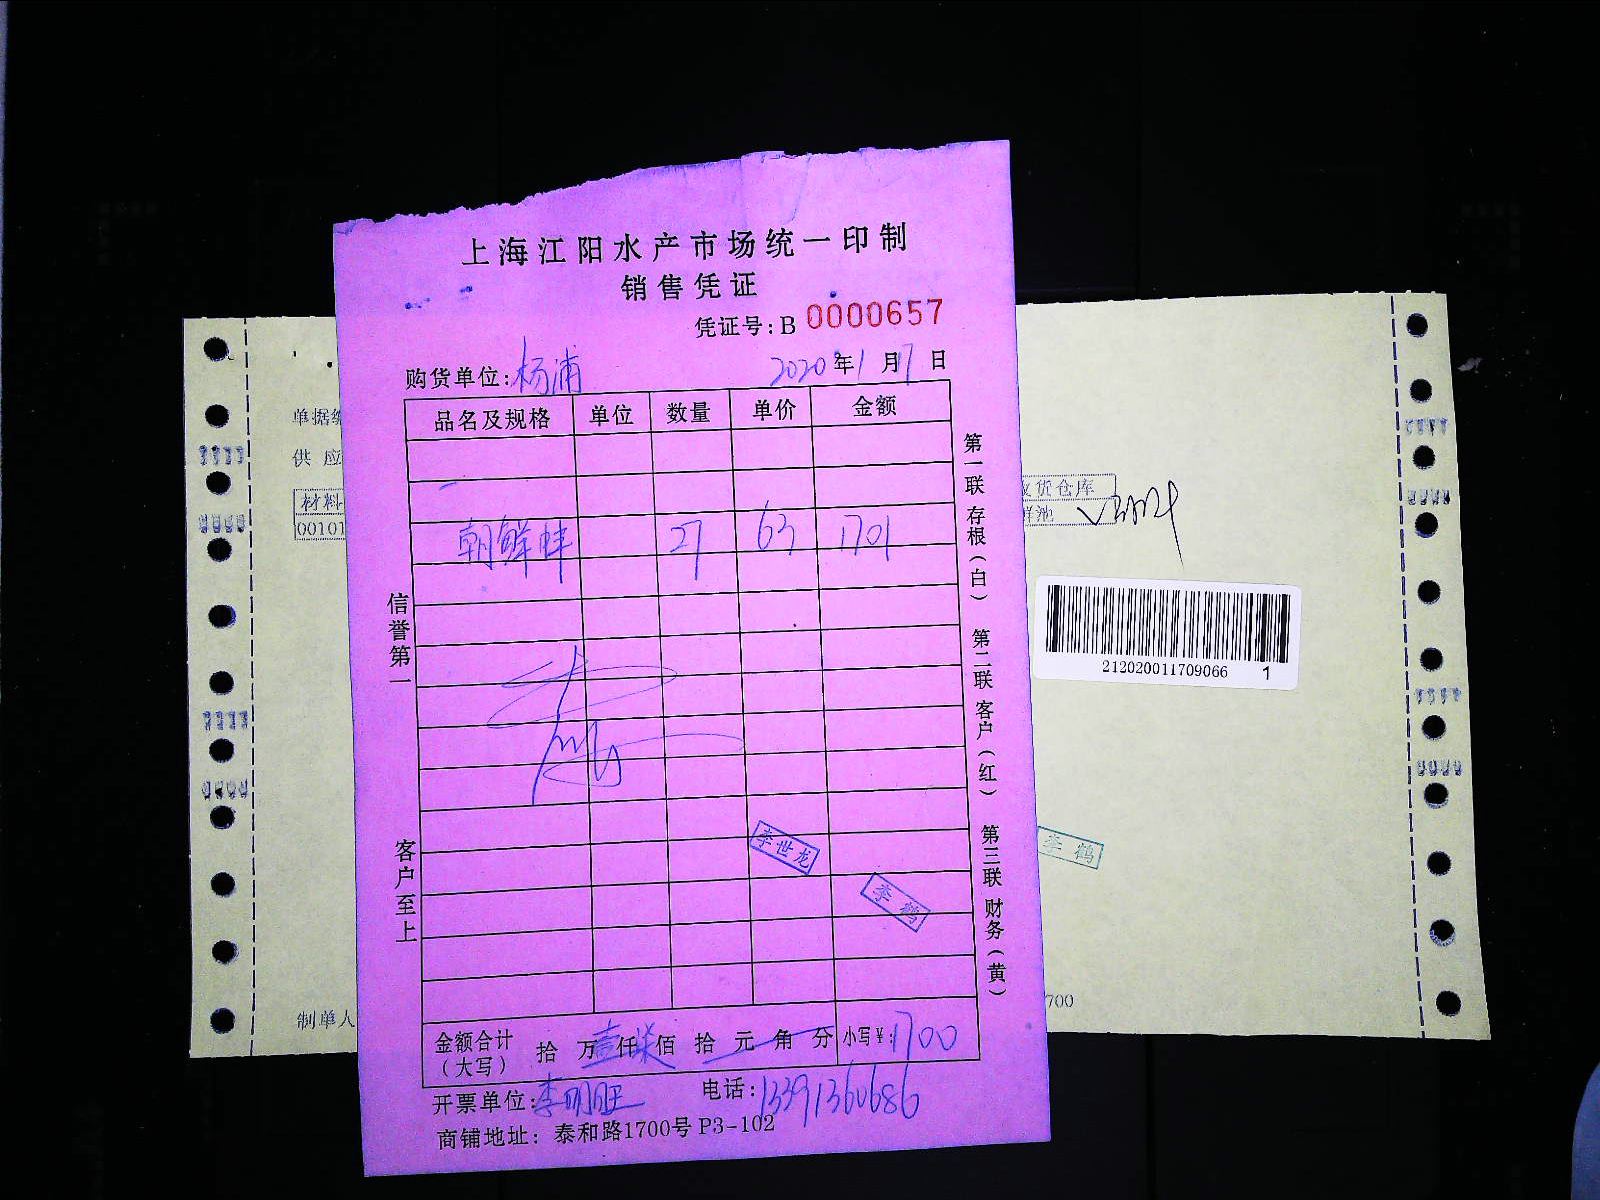 上海江阳水产市场统一印制
销售凭证
凭证号：B 0000657
购货单位：杨浦 2020年1月17日
品名及规格 单位 数量 单价 金额
朝鲜蚌 27 63 1701
信誉第一
客户至上
第一联 存根（白） 第二联 客户（红） 第三联 财务（黄）
李世龙
李鹤
金额合计（大写） 拾 万壹仟柒佰 拾 元 角 分 小写￥：1700
开票单位：李明旺 电话：13391360686
商铺地址：泰和路1700号 P3-102
单据
供 应
材料
00101
制单人
货仓库
鲜池
212020011709066 1
李鹤
700